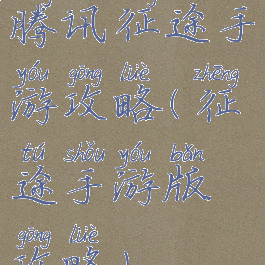 腾讯征途手
yóu gōng lüè zhēng
游攻略(征
tú shǒu yóu bǎn
途手游版
gōng lüè
攻略)